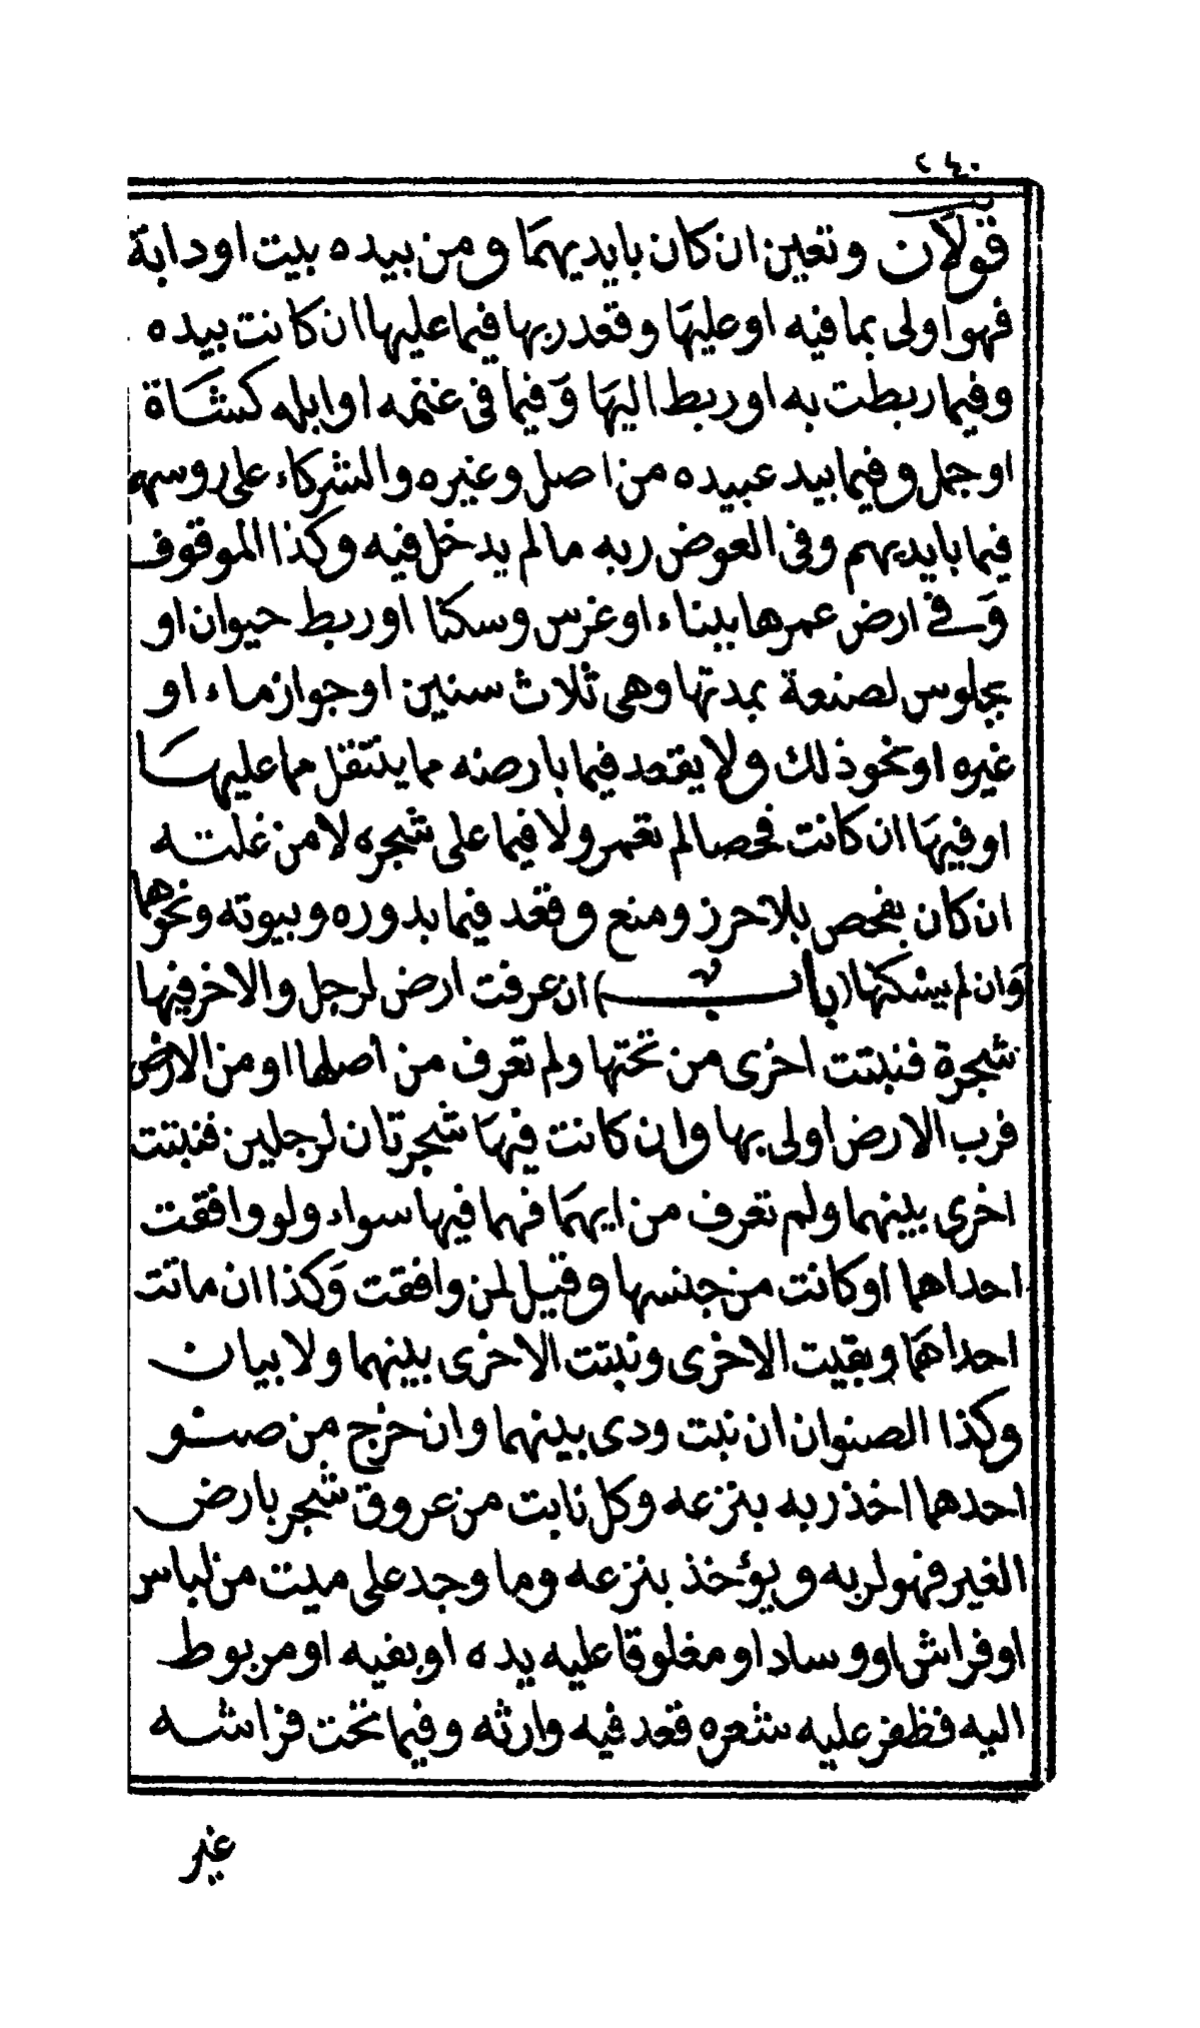 ٢٤٠
قولان وتعين ان كان بايديهما ومن بيده بيت او دابة
فهو اولى بما فيه او عليها وقعد ربها فيما عليها ان كانت بيده
وفيما ربطت به او ربط اليها وفيما فى غنمه او ابله كشاة
او جمل وفيما بيد عبيده من اصل وغيره والشركاء على روسهم
فيما بايديهم وفى العوض ربه ما لم يدخل فيه وكذا الموقوف
وفي ارض عمرها ببناء او غرس وسكنا او ربط حيوان او
بجلوس لصنعة بمدتها وهى ثلاث سنين او جواز ماء او
غيره او نحو ذلك ولا يقعد فيما بارضه مما ينتقل مما عليها
او فيها ان كانت فحصا لم تعمر ولا فيما على شجره لا من غلته
ان كان بفحص بلا حرز ومنع وقعد فيما بدوره وبيوته ونحوها
وان لم يسكنها (باب) ان عرفت ارض لرجل والاخر فيها
شجرة فنبتت اخرى من تحتها ولم تعرف من اصلها او من الارض
فرب الارض اولى بها وان كانت فيها شجرتان لرجلين فنبتت
اخرى بينهما ولم تعرف من ايهما فهما فيها سواء ولو وافقت
احداهما او كانت من جنسها وقيل لمن وافقت وكذا ان ماتت
احداهما وبقيت الاخرى ونبتت الاخرى بينهما ولا بيان
وكذا الصنوان ان نبت ودى بينهما وان خرج من صنو
احدهما اخذ ربه بنزعه وكل نابت من عروق شجر بارض
الغير فهو لربه ويؤخذ بنزعه وما وجد على ميت من لباس
او فراش او وساد او مغلوقا عليه يده او بفيه او مربوط
اليه فظفر عليه شعره قعد فيه وارثه وفيما تحت فراشه
غير